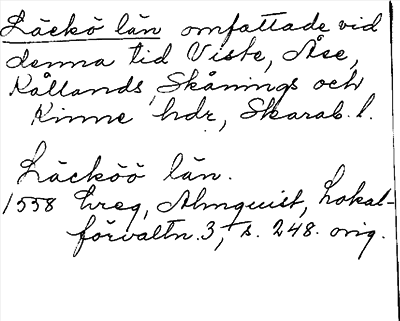 Läckö län omfattade vid
denna tid Viste, Åse,
Kållands, Skånings och
Kinne hdr, Skarab. l.
Läcköö län.
1558 Lreg, Almquist, Lokal-
förvaltn. 3, s. 248. orig.